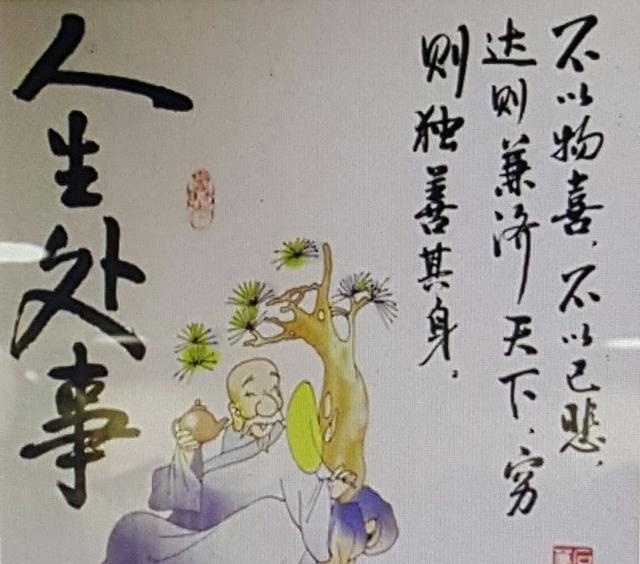 人生处事
不以物喜，不以己悲，
达则兼济天下，穷
则独善其身。